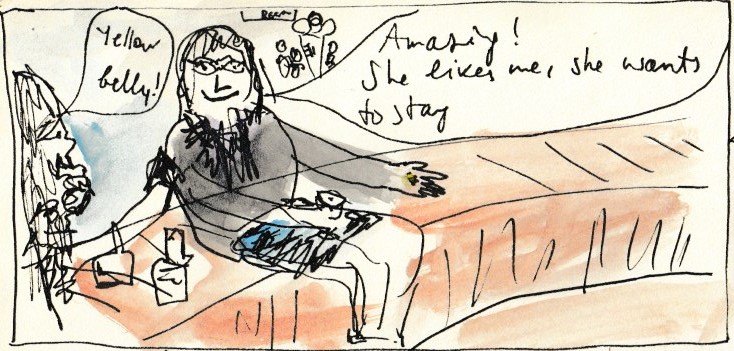 Yellow
belly!
Amazing!
She likes me, she wants
to stay